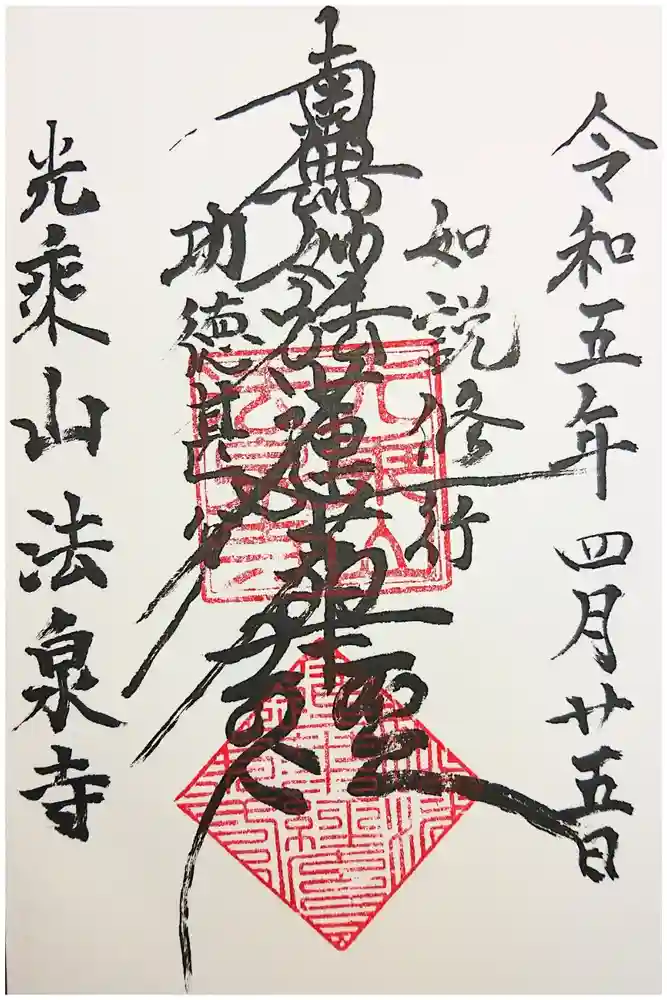 令和五年 四月廿五日
如説修行
南無妙法蓮華経
功徳甚多
光乗山 法泉寺